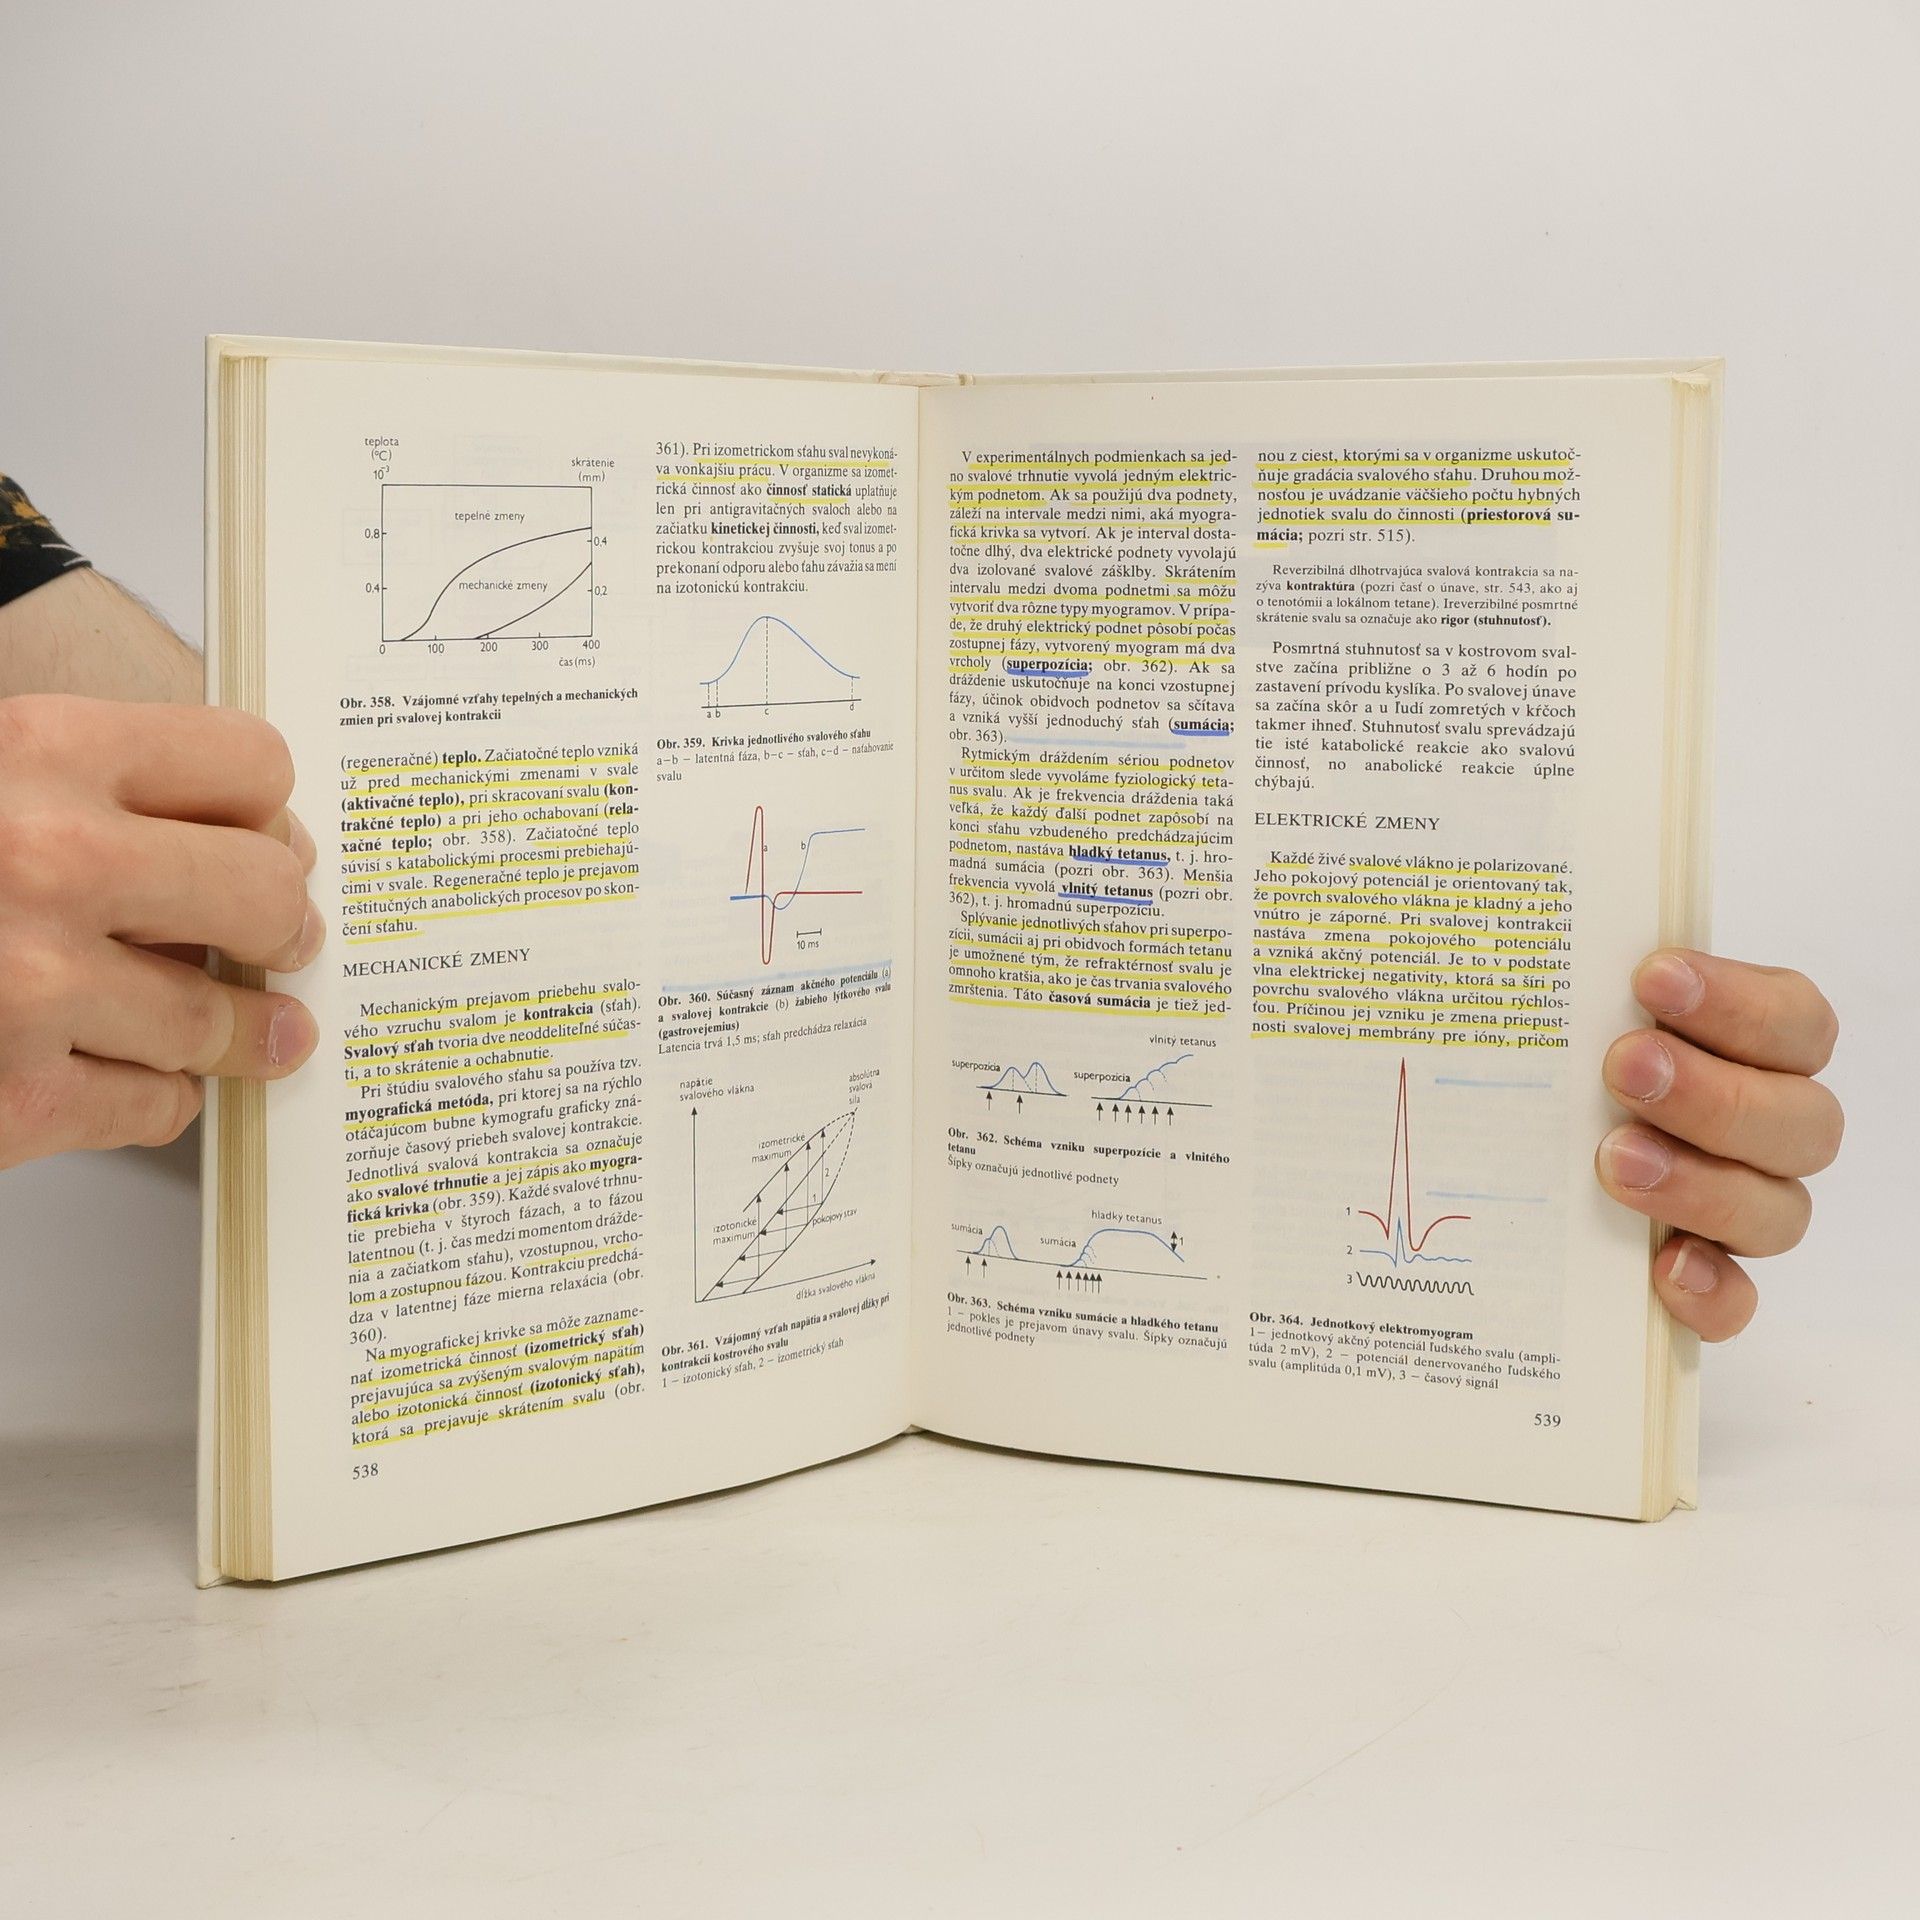 teplota
(°C)
10⁻³
skrátenie
(mm)
tepelné zmeny
mechanické zmeny
0.8
0.4
0,4
0,2
0
100
200
300
400
čas (ms)
Obr. 358. Vzájomné vzťahy tepelných a mechanických
zmien pri svalovej kontrakcii
(regeneračné) teplo. Začiatočné teplo vzniká
už pred mechanickými zmenami v svale
(aktivačné teplo), pri skracovaní svalu (kon-
trakčné teplo) a pri jeho ochabovaní (rela-
xačné teplo; obr. 358). Začiatočné teplo
súvisí s katabolickými procesmi prebiehajú-
cimi v svale. Regeneračné teplo je prejavom
reštitučných anabolických procesov po skon-
čení sťahu.
MECHANICKÉ ZMENY
Mechanickým prejavom priebehu svalo-
vého vzruchu svalom je kontrakcia (sťah).
Svalový sťah tvoria dve neoddeliteľné súčas-
ti, a to skrátenie a ochabnutie.
Pri štúdiu svalového sťahu sa používa tzv.
myografická metóda, pri ktorej sa na rýchlo
otáčajúcom bubne kymografu graficky zná-
zorňuje časový priebeh svalovej kontrakcie.
Jednotlivá svalová kontrakcia sa označuje
ako svalové trhnutie a jej zápis ako myogra-
fická krivka (obr. 359). Každé svalové trhnu-
tie prebieha v štyroch fázach, a to fázou
latentnou (t. j. čas medzi momentom drážde-
nia a začiatkom sťahu), vzostupnou, vrcho-
lom a zostupnou fázou. Kontrakciu predchá-
dza v latentnej fáze mierna relaxácia (obr.
360).
Na myografickej krivke sa môže zazname-
nať izometrická činnosť (izometrický sťah)
prejavujúca sa zvýšeným svalovým napätím
alebo izotonická činnosť (izotonický sťah),
ktorá sa prejavuje skrátením svalu (obr.
538
361). Pri izometrickom sťahu sval nevykoná-
va vonkajšiu prácu. V organizme sa izomet-
rická činnosť ako činnosť statická uplatňuje
len pri antigravitačných svaloch alebo na
začiatku kinetickej činnosti, keď sval izomet-
rickou kontrakciou zvyšuje svoj tonus a po
prekonaní odporu alebo ťahu závažia sa mení
na izotonickú kontrakciu.
a b c d
Obr. 359. Krivka jednotlivého svalového sťahu
a–b – latentná fáza, b–c – sťah, c–d – naťahovanie
svalu
a
b
10 ms
Obr. 360. Súčasný záznam akčného potenciálu (a)
a svalovej kontrakcie (b) žabieho lýtkového svalu
(gastrovejemius)
Latencia trvá 1,5 ms; sťah predchádza relaxácia
napätie
svalového vlákna
absolútna
svalová
sila
izometrické
maximum
2
1
izotonické
maximum
pokojový stav
dĺžka svalového vlákna
Obr. 361. Vzájomný vzťah napätia a svalovej dĺžky pri
kontrakcii kostrového svalu
1 – izotonický sťah, 2 – izometrický sťah
V experimentálnych podmienkach sa jed-
no svalové trhnutie vyvolá jedným elektric-
kým podnetom. Ak sa použijú dva podnety,
záleží na intervale medzi nimi, aká myogra-
fická krivka sa vytvorí. Ak je interval dosta-
točne dlhý, dva elektrické podnety vyvolajú
dva izolované svalové zášklby. Skrátením
intervalu medzi dvoma podnetmi sa môžu
vytvoriť dva rôzne typy myogramov. V prípa-
de, že druhý elektrický podnet pôsobí počas
zostupnej fázy, vytvorený myogram má dva
vrcholy (superpozícia; obr. 362). Ak sa
dráždenie uskutočňuje na konci vzostupnej
fázy, účinok obidvoch podnetov sa sčítava
a vzniká vyšší jednoduchý sťah (sumácia;
obr. 363).
Rytmickým dráždením sériou podnetov
v určitom slede vyvoláme fyziologický teta-
nus svalu. Ak je frekvencia dráždenia taká
veľká, že každý ďalší podnet zapôsobí na
konci sťahu vzbudeného predchádzajúcim
podnetom, nastáva hladký tetanus, t. j. hro-
madná sumácia (pozri obr. 363). Menšia
frekvencia vyvolá vlnitý tetanus (pozri obr.
362), t. j. hromadnú superpozíciu.
Splývanie jednotlivých sťahov pri superpo-
zícii, sumácii aj pri obidvoch formách tetanu
je umožnené tým, že refraktérnosť svalu je
omnoho kratšia, ako je čas trvania svalového
zmrštenia. Táto časová sumácia je tiež jed-
vlnitý tetanus
superpozícia
superpozícia
Obr. 362. Schéma vzniku superpozície a vlnitého
tetanu
Šípky označujú jednotlivé podnety
hladký tetanus
sumácia
sumácia
1
Obr. 363. Schéma vzniku sumácie a hladkého tetanu
1 – pokles je prejavom únavy svalu. Šípky označujú
jednotlivé podnety
nou z ciest, ktorými sa v organizme uskutoč-
ňuje gradácia svalového sťahu. Druhou mož-
nosťou je uvádzanie väčšieho počtu hybných
jednotiek svalu do činnosti (priestorová su-
mácia; pozri str. 515).
Reverzibilná dlhotrvajúca svalová kontrakcia sa na-
zýva kontraktúra (pozri časť o únave, str. 543, ako aj
o tenotómii a lokálnom tetane). Ireverzibilné posmrtné
skrátenie svalu sa označuje ako rigor (stuhnutosť).
Posmrtná stuhnutosť sa v kostrovom sval-
stve začína približne o 3 až 6 hodín po
zastavení prívodu kyslíka. Po svalovej únave
sa začína skôr a u ľudí zomretých v kŕčoch
takmer ihneď. Stuhnutosť svalu sprevádzajú
tie isté katabolické reakcie ako svalovú
činnosť, no anabolické reakcie úplne
chýbajú.
ELEKTRICKÉ ZMENY
Každé živé svalové vlákno je polarizované.
Jeho pokojový potenciál je orientovaný tak,
že povrch svalového vlákna je kladný a jeho
vnútro je záporné. Pri svalovej kontrakcii
nastáva zmena pokojového potenciálu
a vzniká akčný potenciál. Je to v podstate
vlna elektrickej negativity, ktorá sa šíri po
povrchu svalového vlákna určitou rýchlos-
ťou. Príčinou jej vzniku je zmena priepust-
nosti svalovej membrány pre ióny, pričom
1
2
3
Obr. 364. Jednotkový elektromyogram
1– jednotkový akčný potenciál ľudského svalu (ampli-
túda 2 mV), 2 – potenciál denervovaného ľudského
svalu (amplitúda 0,1 mV), 3 – časový signál
539